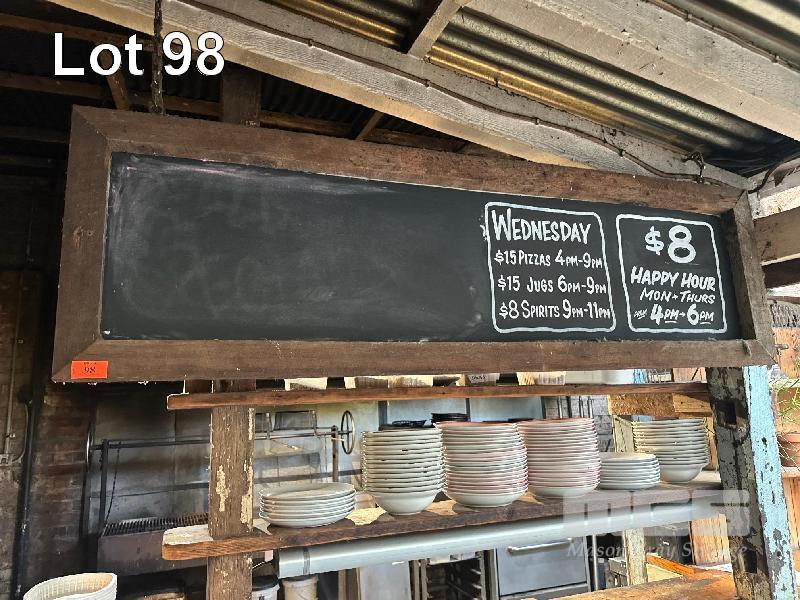 Lot 98
WEDNESDAY
$15 PIZZAS 4PM-9PM
$15 JUGS 6PM-9PM
$8 SPIRITS 9PM-11PM
$8
HAPPY HOUR
MON + THURS
4PM - 6PM
98
MGS
Mason Gray Strange